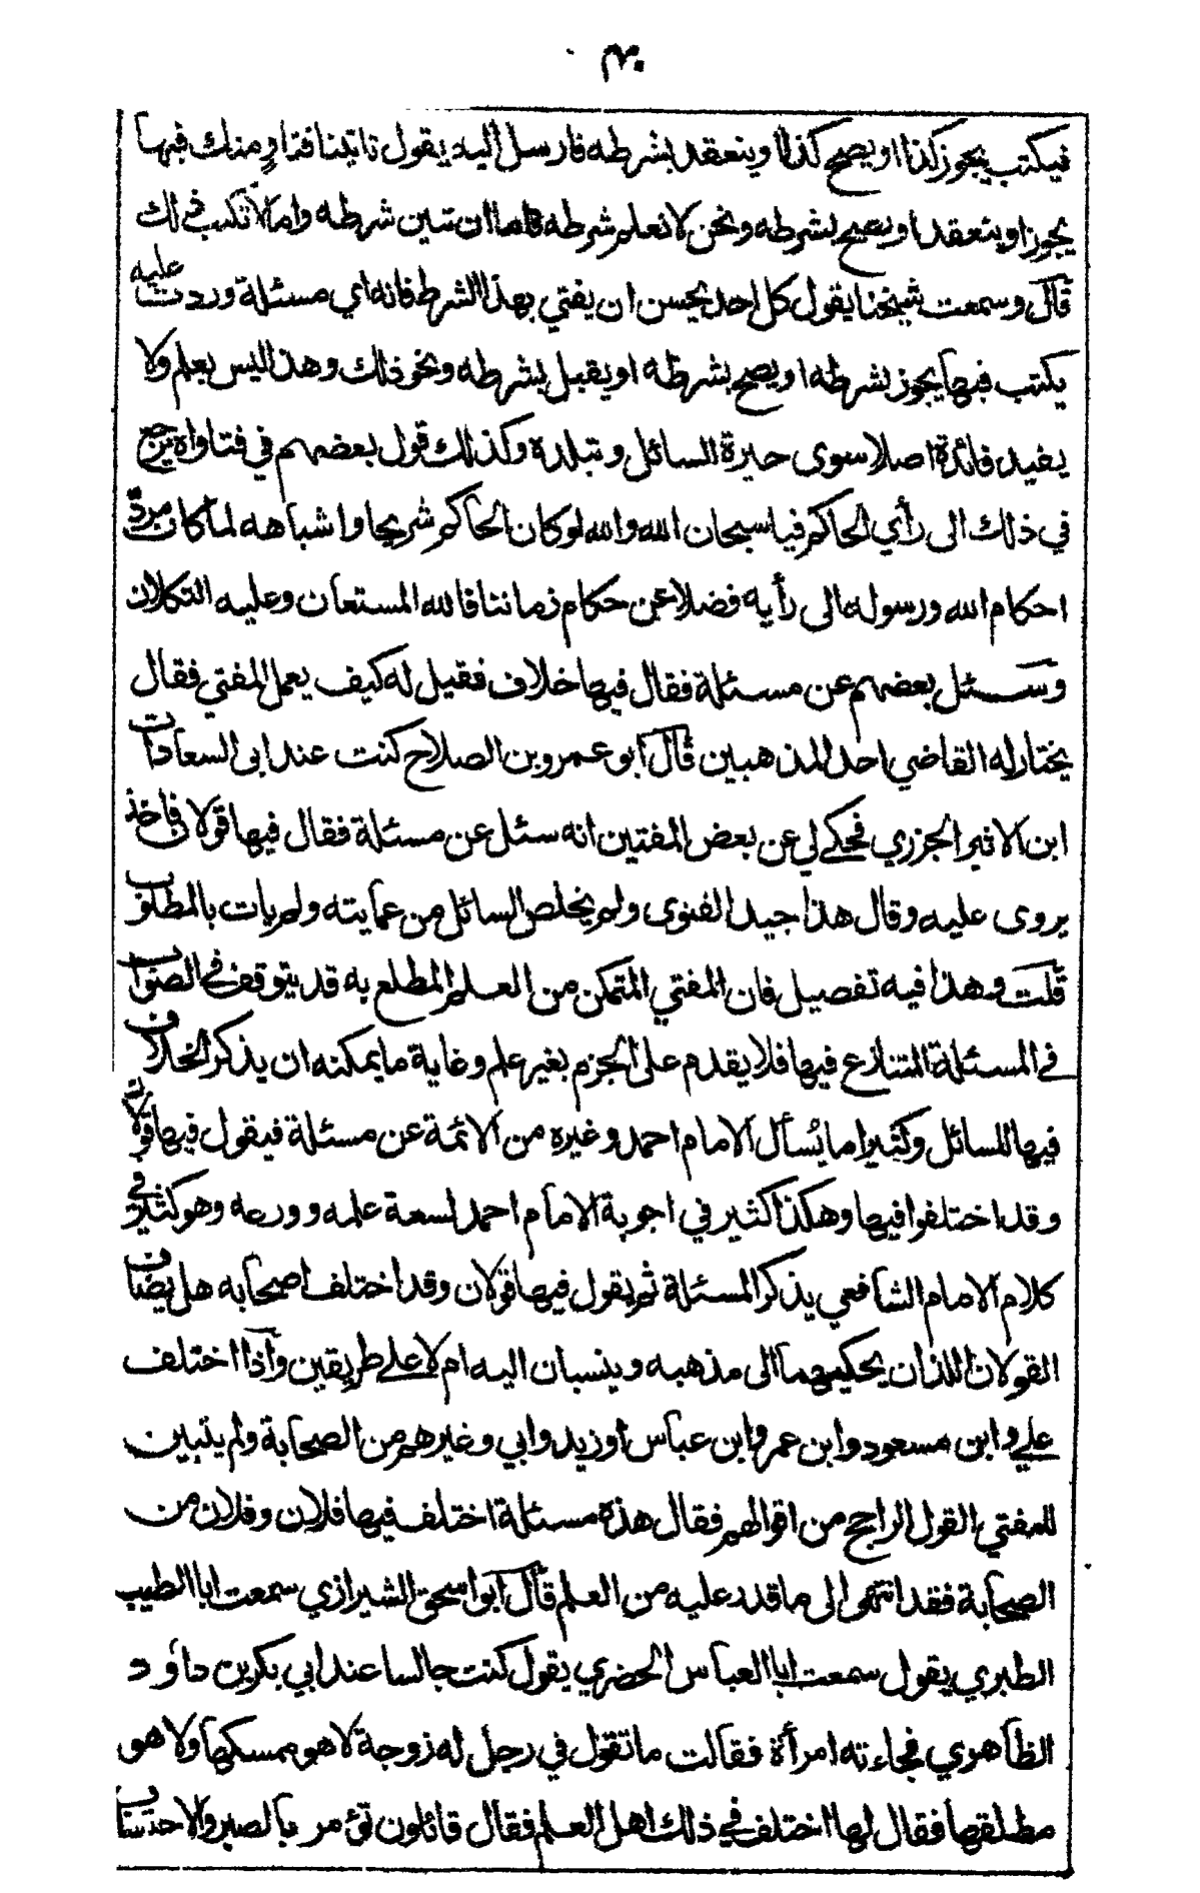 فيكتب يجوز كذا او يصح كذا او ينعقد بشرطه فارسل اليه يقول تاتينا فتاوٍ منك فيها
يجوز او ينعقد او يصح بشرطه ونحن لا نعلم شرطه فاما ان تبين شرطه واما لا تكتب ذلك
قال وسمعت شيخنا يقول كل احد يحسن ان يفتي بهذا الشرط فانه اي مسئلة وردت عليه
يكتب فيها يجوز بشرطه او يصح بشرطه او يقبل بشرطه ونحو ذلك وهذا ليس بعلم ولا
يفيد فائدة اصلا سوى حيرة السائل وتبلده وكذلك قول بعضهم في فتاواه يرجع
في ذلك الى رأي الحاكم فيا سبحان الله والله لو كان الحاكم شريحا واشباهه لما كان مردّ
احكام الله ورسوله الى رأيه فضلا عن حكام زماننا فالله المستعان وعليه التكلان
وسئل بعضهم عن مسئلة فقال فيها خلاف فقيل له كيف يعمل المفتي فقال
يختار له القاضي احد المذهبين قال ابو عمرو بن الصلاح كنت عند ابى السعادات
ابن الاثير الجزري فحكى لي عن بعض المفتين انه سئل عن مسئلة فقال فيها قولان فاخذ
يروى عليه وقال هذا جيد الفتوى ولم يخلص السائل من عمايته ولم يات بالمطلوب
قلت وهذا فيه تفصيل فان المفتي المتمكن من العلم المطلع به قد يتوقف في الصواب
في المسئلة المتنازع فيها فلا يقدم على الجزم بغير علم وغاية ما يمكنه ان يذكر الخلاف
فيها للسائل وكثيرا ما يُسأل الامام احمد وغيره من الائمة عن مسئلة فيقول فيها قولان
وقد اختلفوا فيها وهكذا كثير في اجوبة الامام احمد لسعة علمه وورعه وهو كثير في
كلام الامام الشافعي يذكر المسئلة ثم يقول فيها قولان وقد اختلف اصحابه هل يضاف
القولان اللذان يحكيهما الى مذهبه وينسبان اليه ام لا على طريقين واذا اختلف
علي وابن مسعود وابن عمر وابن عباس او زيد وابي وغيرهم من الصحابة ولم يتبين
للمفتي القول الراجح من اقوالهم فقال هذه مسئلة اختلف فيها فلان وفلان من
الصحابة فقد انتهى الى ما قدر عليه من العلم قال ابو اسحق الشيرازي سمعت ابا الطيب
الطبري يقول سمعت ابا العباس الحضري يقول كنت جالسا عند ابي بكر بن داؤد
الظاهري فجاءته امرأة فقالت ما تقول في رجل له زوجة لا هو ممسكها ولا هو
مطلقها فقال لها اختلف في ذلك اهل العلم فقال قائلون تؤمر بالصبر والاحتساب